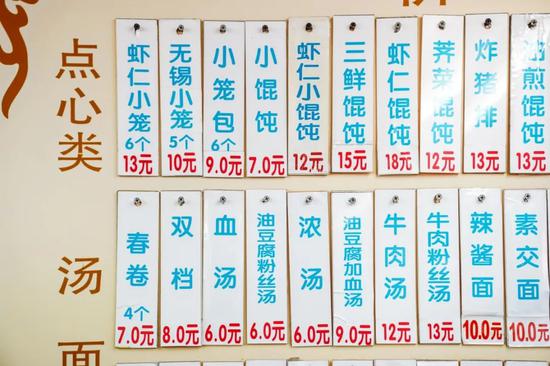 点心类
虾仁小笼 6个 13元
无锡小笼 5个 10元
小笼包 6个 9.0元
小馄饨 7.0元
虾仁小馄饨 12元
三鲜馄饨 15元
虾仁馄饨 18元
荠菜馄饨 12元
炸猪排 13元
油煎馄饨 13元
汤面
春卷 4个 7.0元
双档 8.0元
血汤 6.0元
油豆腐粉丝汤 6.0元
浓汤 6.0元
油豆腐加血汤 9.0元
牛肉汤 12元
牛肉粉丝汤 13元
辣酱面 10.0元
素交面 10.0元